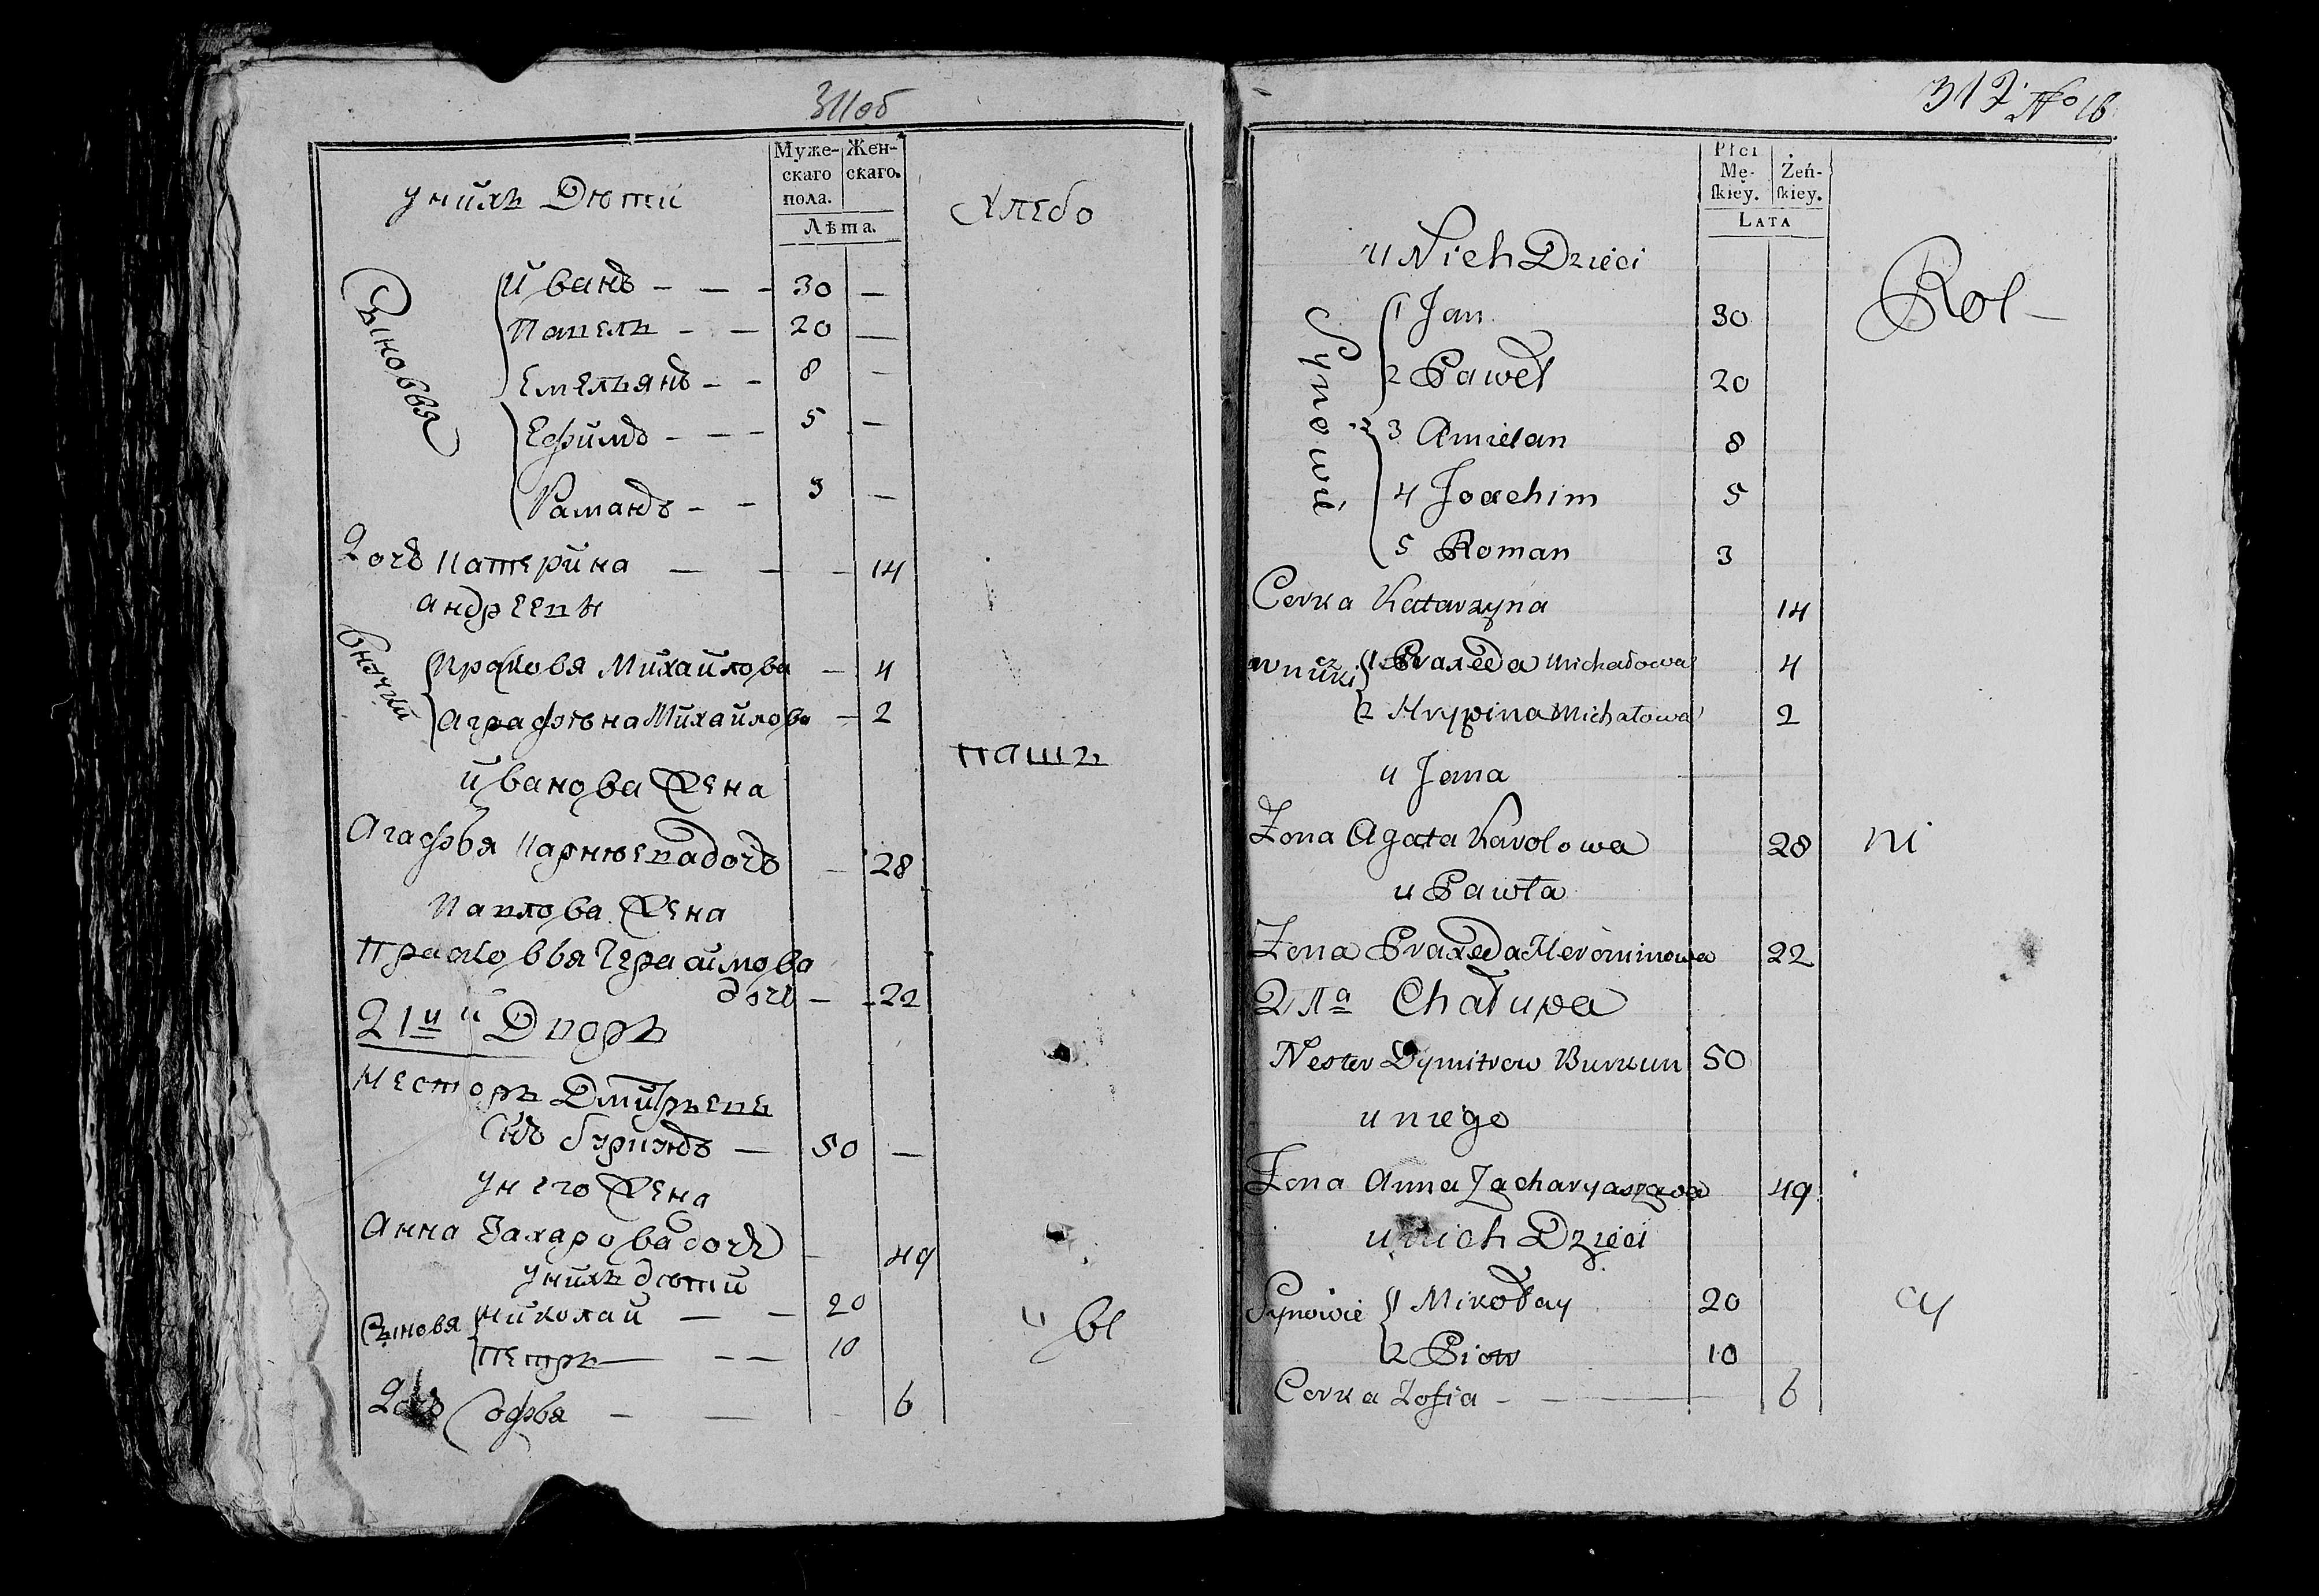 311об
Муже-
скаго
пола.
Жен-
скаго.
Лѣта.
унихъ Дѣти
Хлебо
Сыновья
Иванъ - - - 30 —
Павелъ - - 20 —
Емельянъ - - 8 —
Ефимъ - - - 5 —
Раманъ - - 3 —
Дочь Катерина — — — 14
Андреевы
Внучки
Праковя Михайлова — 4
Аграфѣна Михайлова — 2
паш
Иванова Жена
Агафья Карнѣева дочь — 28
Павлова Жена
Прасковья Герасимова
дочь — - 22
21й Дворъ
Несторъ Дмитрьевъ
Снъ Буркунъ — 50 —
унего Жена
Анна Захарова дочь — 49
унихъ дѣти
Сыновя
Николай — — 20
Петръ — — — 10
цы
Дочь Софья — — - 6
312 No 16
Płci
Mę-
ſkiey.
Żeń-
ſkiey.
LATA
u Nich Dzieci
Rol-
Synowie
1 Jan 30
2 Paweł 20
3 Amielan 8
4 Joachim 5
5 Roman 3
Corka Katarzyna 14
wnuczki
1 Praxeda Michałowa 4
2 Hrypina Michałowa 2
u Jana
Żona Agata Karolowa 28
ni
u Pawła
Żona Praxeda Heronimowa 22
21a Chałupa
Nester Dymitrow Burkun 50
u niego
Żona Anna Zacharyaszowa 49
u nich Dzieci
Synowie
1 Mikołay 20
cy
2 Piotr 10
Corka Zofia - — 6